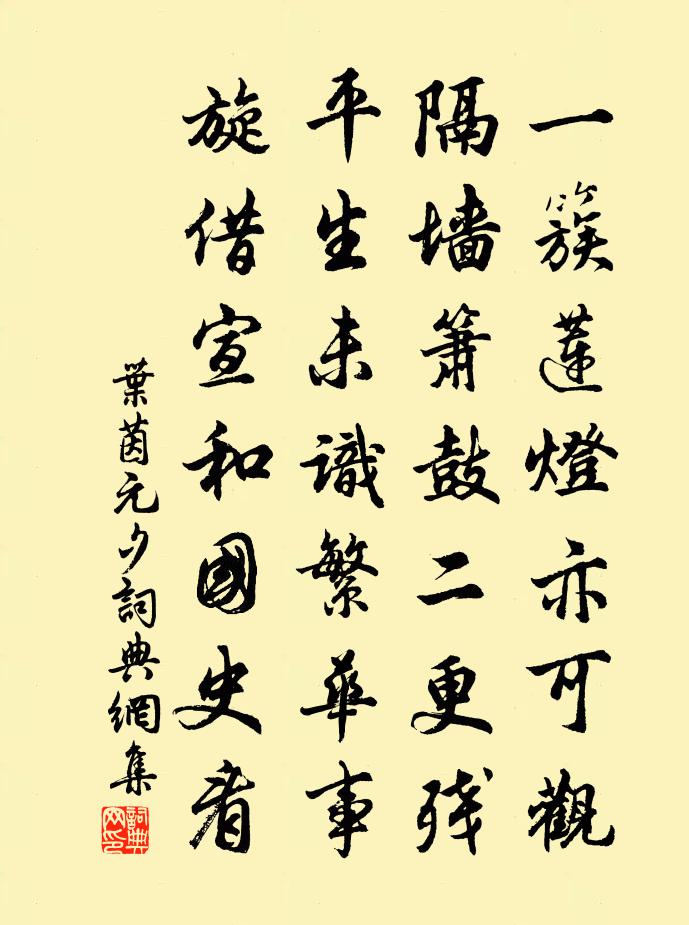 一簇蓮燈亦可觀
隔墻簫鼓二更残
平生未識繁華事
旋借宣和國史看
葉茵元夕詞典網集
詞典网印